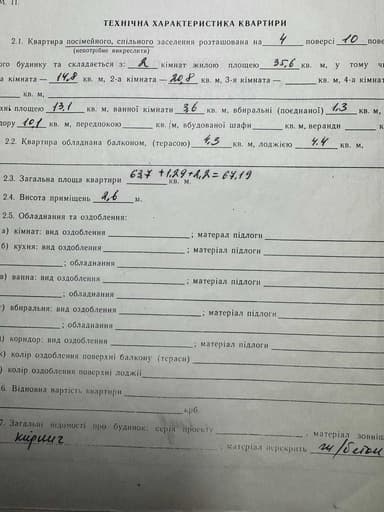 М. П.
ТЕХНІЧНА ХАРАКТЕРИСТИКА КВАРТИРИ
2.1. Квартира посімейного, спільного заселення розташована на 4 поверсі 10 пове
(непотрібне викреслити)
ого будинку та складається з: 2 кімнат жилою площею 35,6 кв. м, у тому чи
а кімната — 14,8 кв. м, 2-а кімната — 20,8 кв. м, 3-я кімната — кв. м, 4-а кімнат
кв. м,
хні площею 13,1 кв. м, ванної кімнати 3,6 кв. м, вбиральні (поєднаної) 1,3 кв. м,
дору 10,1 кв. м, передпокою кв. м, вбудованої шафи кв. м, веранди к
2.2. Квартира обладнана балконом, (терасою) 4.3 кв. м, лоджією 4.4 кв. м,
2.3. Загальна площа квартири 63,7 +1,29+2,2=67,19 кв. м.
2.4. Висота приміщень 2,6 м.
2.5. Обладнання та оздоблення:
а) кімнат: вид оздоблення ; матерал підлоги
б) кухня: вид оздоблення ; матеріал підлоги
; обладнання
в) ванна: вид оздоблення ; матеріал підлоги
; обладнання
г) вбиральня: вид оздоблення ; матеріал підлоги
; обладнання
д) коридор: вид оздоблення ; матеріал підлоги
) колір оздоблення поверхні балкону (тераси)
) колір оздоблення поверхні лоджії
6. Відновна вартість квартири
крб.
7. Загальні відомості про будинок: серія проекту , матеріал зовніш
, матеріал перекрить